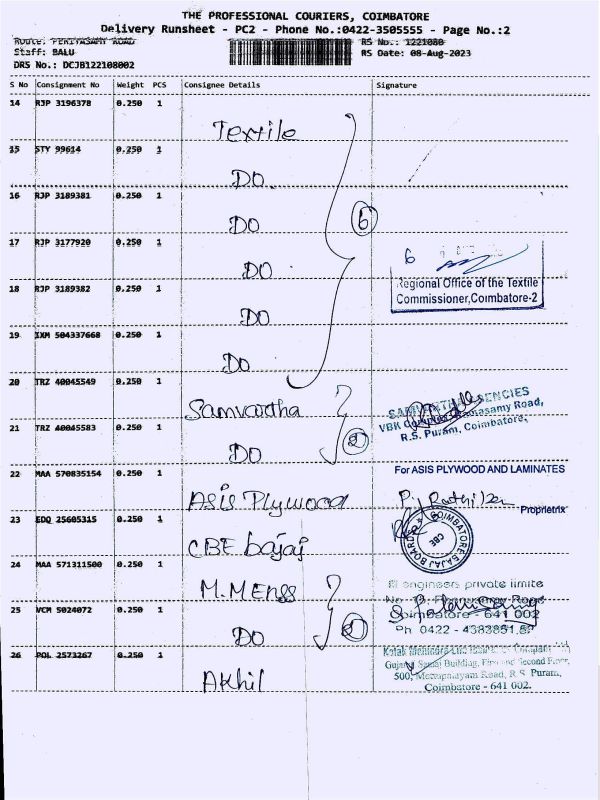 THE PROFESSIONAL COURIERS, COIMBATORE
Delivery Runsheet - PC2 - Phone No.:0422-3505555 - Page No.:2
Route: PERIYASAMY ROAD RS No.: 1221080
Staff: BALU RS Date: 08-Aug-2023
DRS No.: DCJB122108002
S No Consignment No Weight PCS Consignee Details Signature
14 RJP 3196378 0.250 1
Textile
15 STY 99614 0.250 1
DO
16 RJP 3189381 0.250 1
DO
6
17 RJP 3177920 0.250 1
DO
6
18 RJP 3189382 0.250 1
Regional Office of the Textile
Commissioner,Coimbatore-2
DO
19 IXM 504337668 0.250 1
DO
20 TRZ 40045549 0.250 1
Samvartha
SAMVARTHA AGENCIES
VBK Road,
R.S. Puram, Coimbatore,
21 TRZ 40045583 0.250 1
DO
2
22 MAA 570835154 0.250 1
For ASIS PLYWOOD AND LAMINATES
ASIS Plywood
Proprietrix
23 EDQ 25605315 0.250 1
CBE bajaj
COIMBATORE BAJAJ BOARD
CBE
24 MAA 571311500 0.250 1
M.M Engs
engineers private limite
Road
25 VCM 5024072 0.250 1
Coimbatore - 641 002
DO
2
Ph 0422 - 4383851,
26 POL 2573267 0.250 1
Kotak Mahindra Life Company
Gujarati Samaj Building, First and Second Floor,
500, Mettupalayam Road, R.S. Puram,
Coimbatore - 641 002.
Akhil